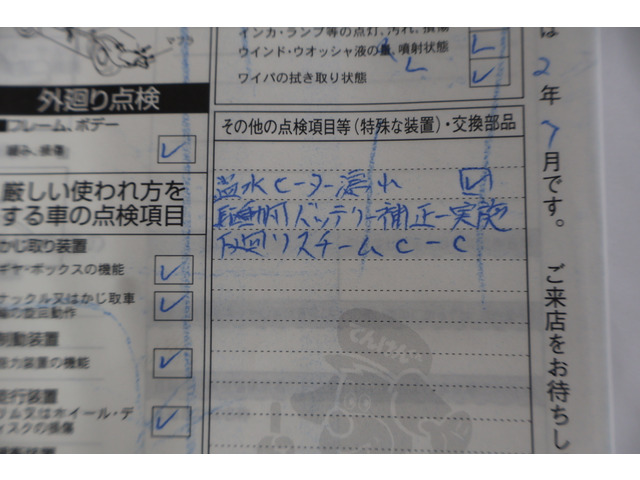 マフラ
外廻り点検
■フレーム、ボデー
緩み、損傷
厳しい使われ方を
する車の点検項目
かじ取り装置
ギヤ・ボックスの機能
ナックル又はかじ取車
輪の旋回動作
制動装置
制力装置の機能
走行装置
リム又はホイール・デ
ィスクの損傷
インカ・ランプ等の点灯、汚れ、損傷
ウインド・ウオッシャ液の量、噴射状態
ワイパの拭き取り状態
その他の点検項目等(特殊な装置)・交換部品
温水ヒーター漏れ
駆動用バッテリー補正 実施
下廻りスチーム C-C
てんけんくん
は2年7月です。 ご来店をお待ちし